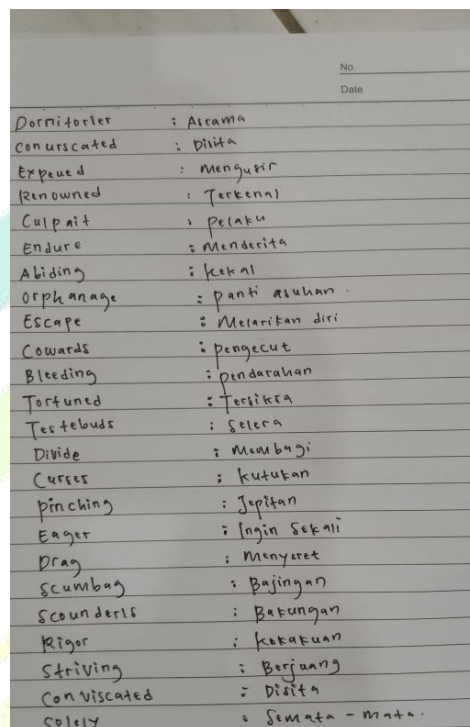 No.
Date
Dormitorier : Asrama
Conurscated : Disita
Expeued : Mengusir
Renowned : Terkenal
Culpait : Pelaku
Endure : Menderita
Abiding : Kekal
Orphanage : Panti asuhan.
Escape : Melarikan diri
Cowards : pengecut
Bleeding : pendarahan
Tortuned : Tersiksa
Testebuds : Selera
Divide : Membagi
Curses : Kutukan
pinching : Jepitan
Eager : Ingin Sekali
Drag : Menyeret
Scumbag : Bajingan
Scounderls : Bakungan
Rigor : Kekakuan
Striving : Berjuang
Conviscated : Disita
Solely : Semata - mata.